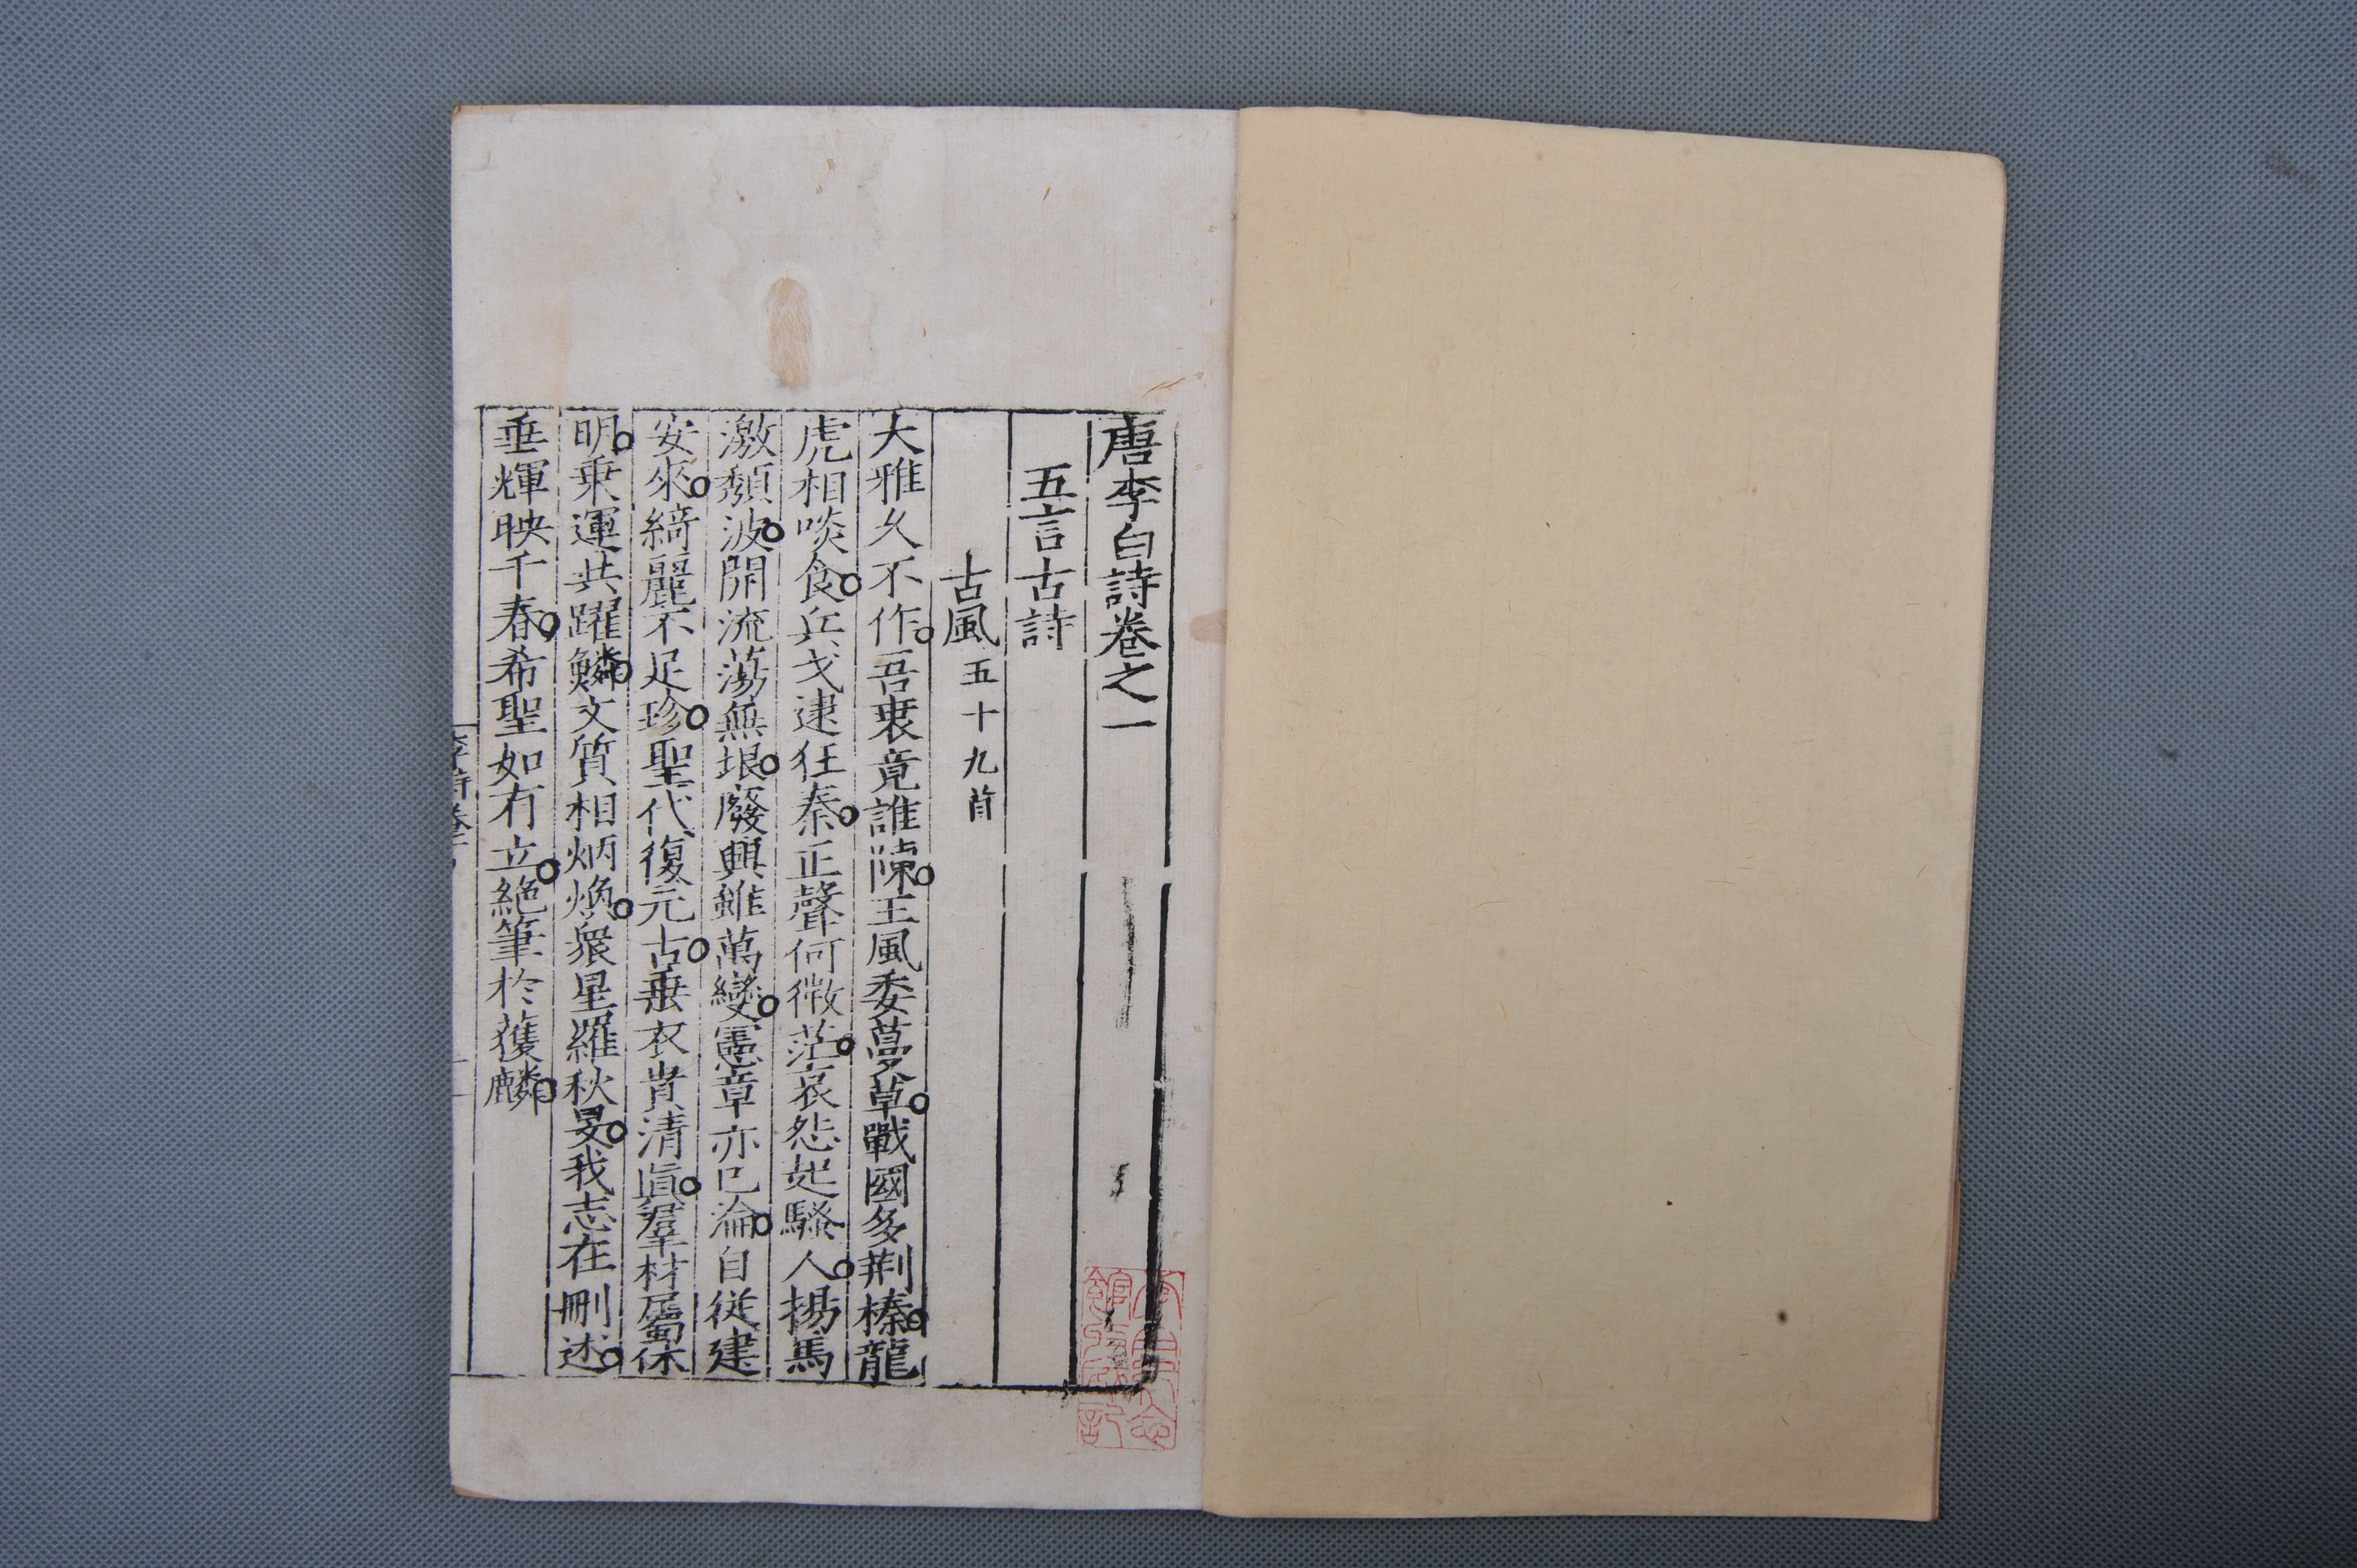 唐李白詩卷之一
五言古詩
古風五十九首
大雅久不作吾衰竟誰陳王風委蔓草戰國多荆榛龍
虎相啖食兵戈逮狂秦正聲何微茫哀怨起騷人揚馬
激頹波開流蕩無垠廢興雖萬變憲章亦已淪自從建
安來綺麗不足珍聖代復元古垂衣貴清眞羣材屬休
明乘運共躍鱗文質相炳煥衆星羅秋旻我志在刪述
垂輝映千春希聖如有立絕筆於獲麟
李詩卷一